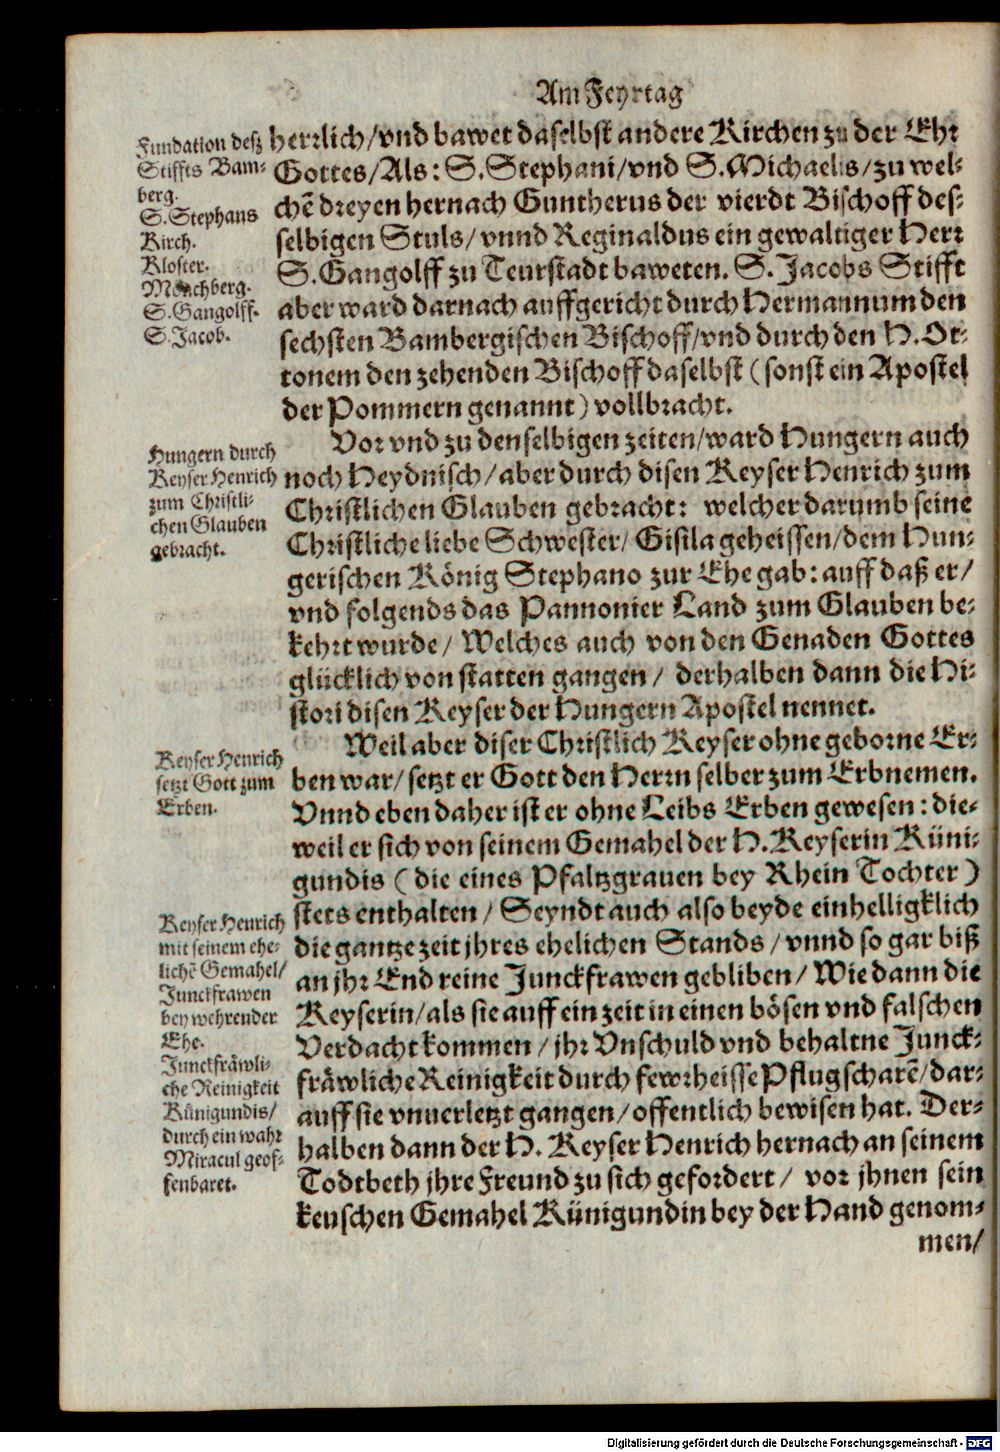 Am Feyrtag
Fundation deß
Stiffts Bam-
berg.
S. Stephans
Kirch.
Kloster.
Mönchberg.
S. Gangolff.
S. Jacob.
herrlich/vnd bawet daselbst andere Kirchen zu der Ehr
Gottes/Als: S. Stephani/vnd S. Michaelis/zu wel-
chē dreyen hernach Guntherus der vierdt Bischoff des-
selbigen Stuls/vnnd Reginaldus ein gewaltiger Herr
S. Gangolff zu Teurstadt baweten. S. Jacobs Stifft
aber ward darnach auffgericht durch Hermannum den
sechsten Bambergischen Bischoff/vnd durch den H. Ot-
tonem den zehenden Bischoff daselbst (sonst ein Apostel
der Pommern genannt) vollbracht.
Hungern durch
Keyser Henrich
zum Christli-
chen Glauben
gebracht.
Vor vnd zu denselbigen zeiten/ward Hungern auch
noch Heydnisch/aber durch disen Keyser Henrich zum
Christlichen Glauben gebracht: welcher darumb seine
Christliche liebe Schwester/Gisila geheissen/dem Hun-
gerischen König Stephano zur Ehe gab: auff daß er/
vnd folgends das Pannonier Land zum Glauben be-
kehrt wurde/ Welches auch von den Genaden Gottes
glücklich von statten gangen/ derhalben dann die Hi-
stori disen Keyser der Hungern Apostel nennet.
Keyser Henrich
setzt Gott zum
Erben.
Weil aber diser Christlich Keyser ohne geborne Er-
ben war/setzt er Gott den Herrn selber zum Erbnemen.
Vnnd eben daher ist er ohne Leibs Erben gewesen: die-
weil er sich von seinem Gemahel der H. Keyserin Küni-
gundis (die eines Pfaltzgrauen bey Rhein Tochter)
stets enthalten/ Seyndt auch also beyde einhelligklich
die gantze zeit jhres ehelichen Stands/vnnd so gar biß
an jhr End reine Junckfrawen gebliben/ Wie dann die
Keyserin/als sie auff ein zeit in einen bösen vnd falschen
Verdacht kommen/jhr Vnschuld vnd behaltne Junck-
fräwliche Reinigkeit durch fewrheisse Pflugscharē/dar-
auff sie vnuerletzt gangen/offentlich bewisen hat. Der-
halben dann der H. Keyser Henrich hernach an seinem
Todtbeth jhre Freund zu sich gefordert/ vor jhnen sein
keuschen Gemahel Künigundin bey der Hand genom-
Keyser Henrich
mit seinem ehe-
lichē Gemahel/
Junckfrawen
bey wehrender
Ehe.
Junckfräwli-
che Reinigkeit
Künigundis/
durch ein wahr
Miracul geof-
fenbaret.
men/
Digitalisierung gefördert durch die Deutsche Forschungsgemeinschaft - DFG